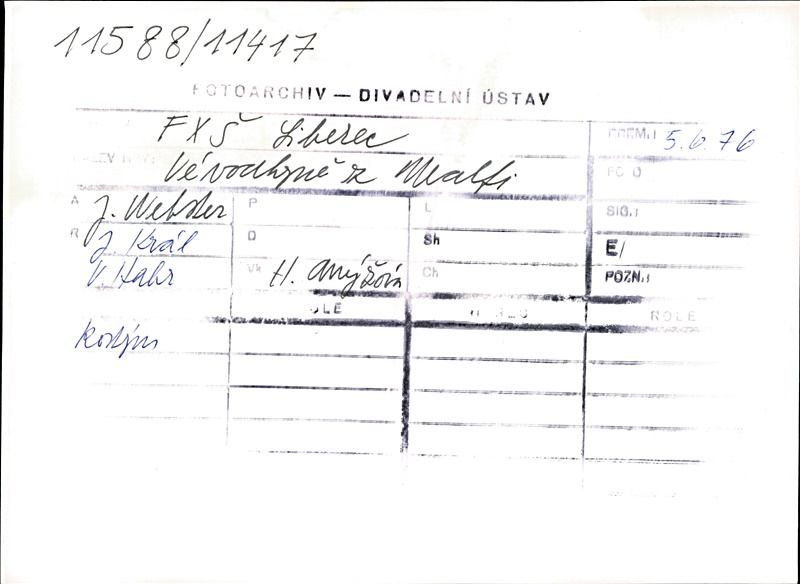 11588/11417
FOTOARCHIV — DIVADELNÍ ÚSTAV
FXŠ Liberec
PREM.: 5.6.76
Vévodkyně z Malfi
FOTO
A J. Webster P L SIG.:
R J. Král D Sh E/
V. Habr Vk H. Anýžová Ch POZN.:
ROLE HEREC ROLE
kostým